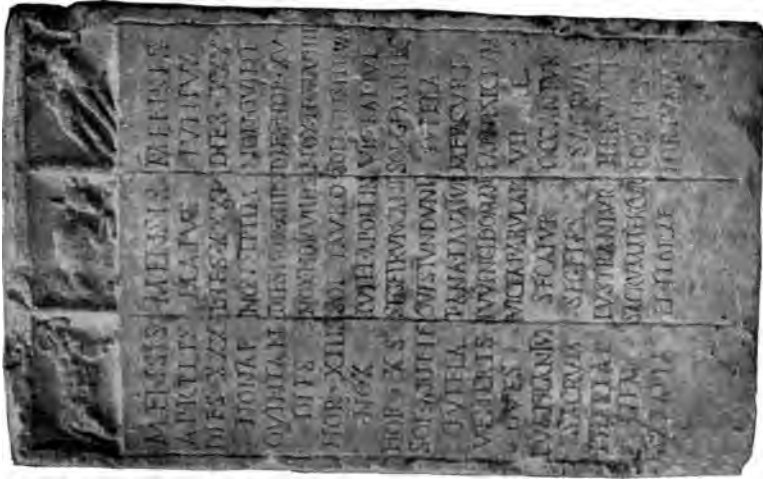 MENSIS
APRILIS
DIES·XXX
NONAE
QVINTAN
DIES
HOR·XIII
NOX
HOR·X S
SOL·ARIETE
TVTELA
VENERIS
OVES
LVSTRANTVR
SACRVM
PHARIAE
ITEM
SARAPIA
MENSIS
MAIVS
DIES·XXXI
NON·SEPTIM
DIES·HOR·XIIII S
NOX·HOR·VIIII S
SOL·TAVRO
TVTEL·APOLLIN
SEGET·RVNCANT
OVES·TVNDVNT
LANA·LAVATVR
IVVENCI·DOMANT
VICEA·PABVLAR
SECATVR
SEGETES
LVSTRANTVR
SACRVM·MERCVR
ET·FLORAE
MENSIS
IVNIVS
DIES·XXX
NON·QVINT
DIES·HOR·XV
NOX·HOR·VIIII
SOLIS·INSTITIVM
VIII·KAL·IVL
SOL·GEMINIS
TVTELA
MERCVRI
FAENISICIVM
OCCANTVR
SACRVM
HERCVLI
FORTIS
FORTVNAE